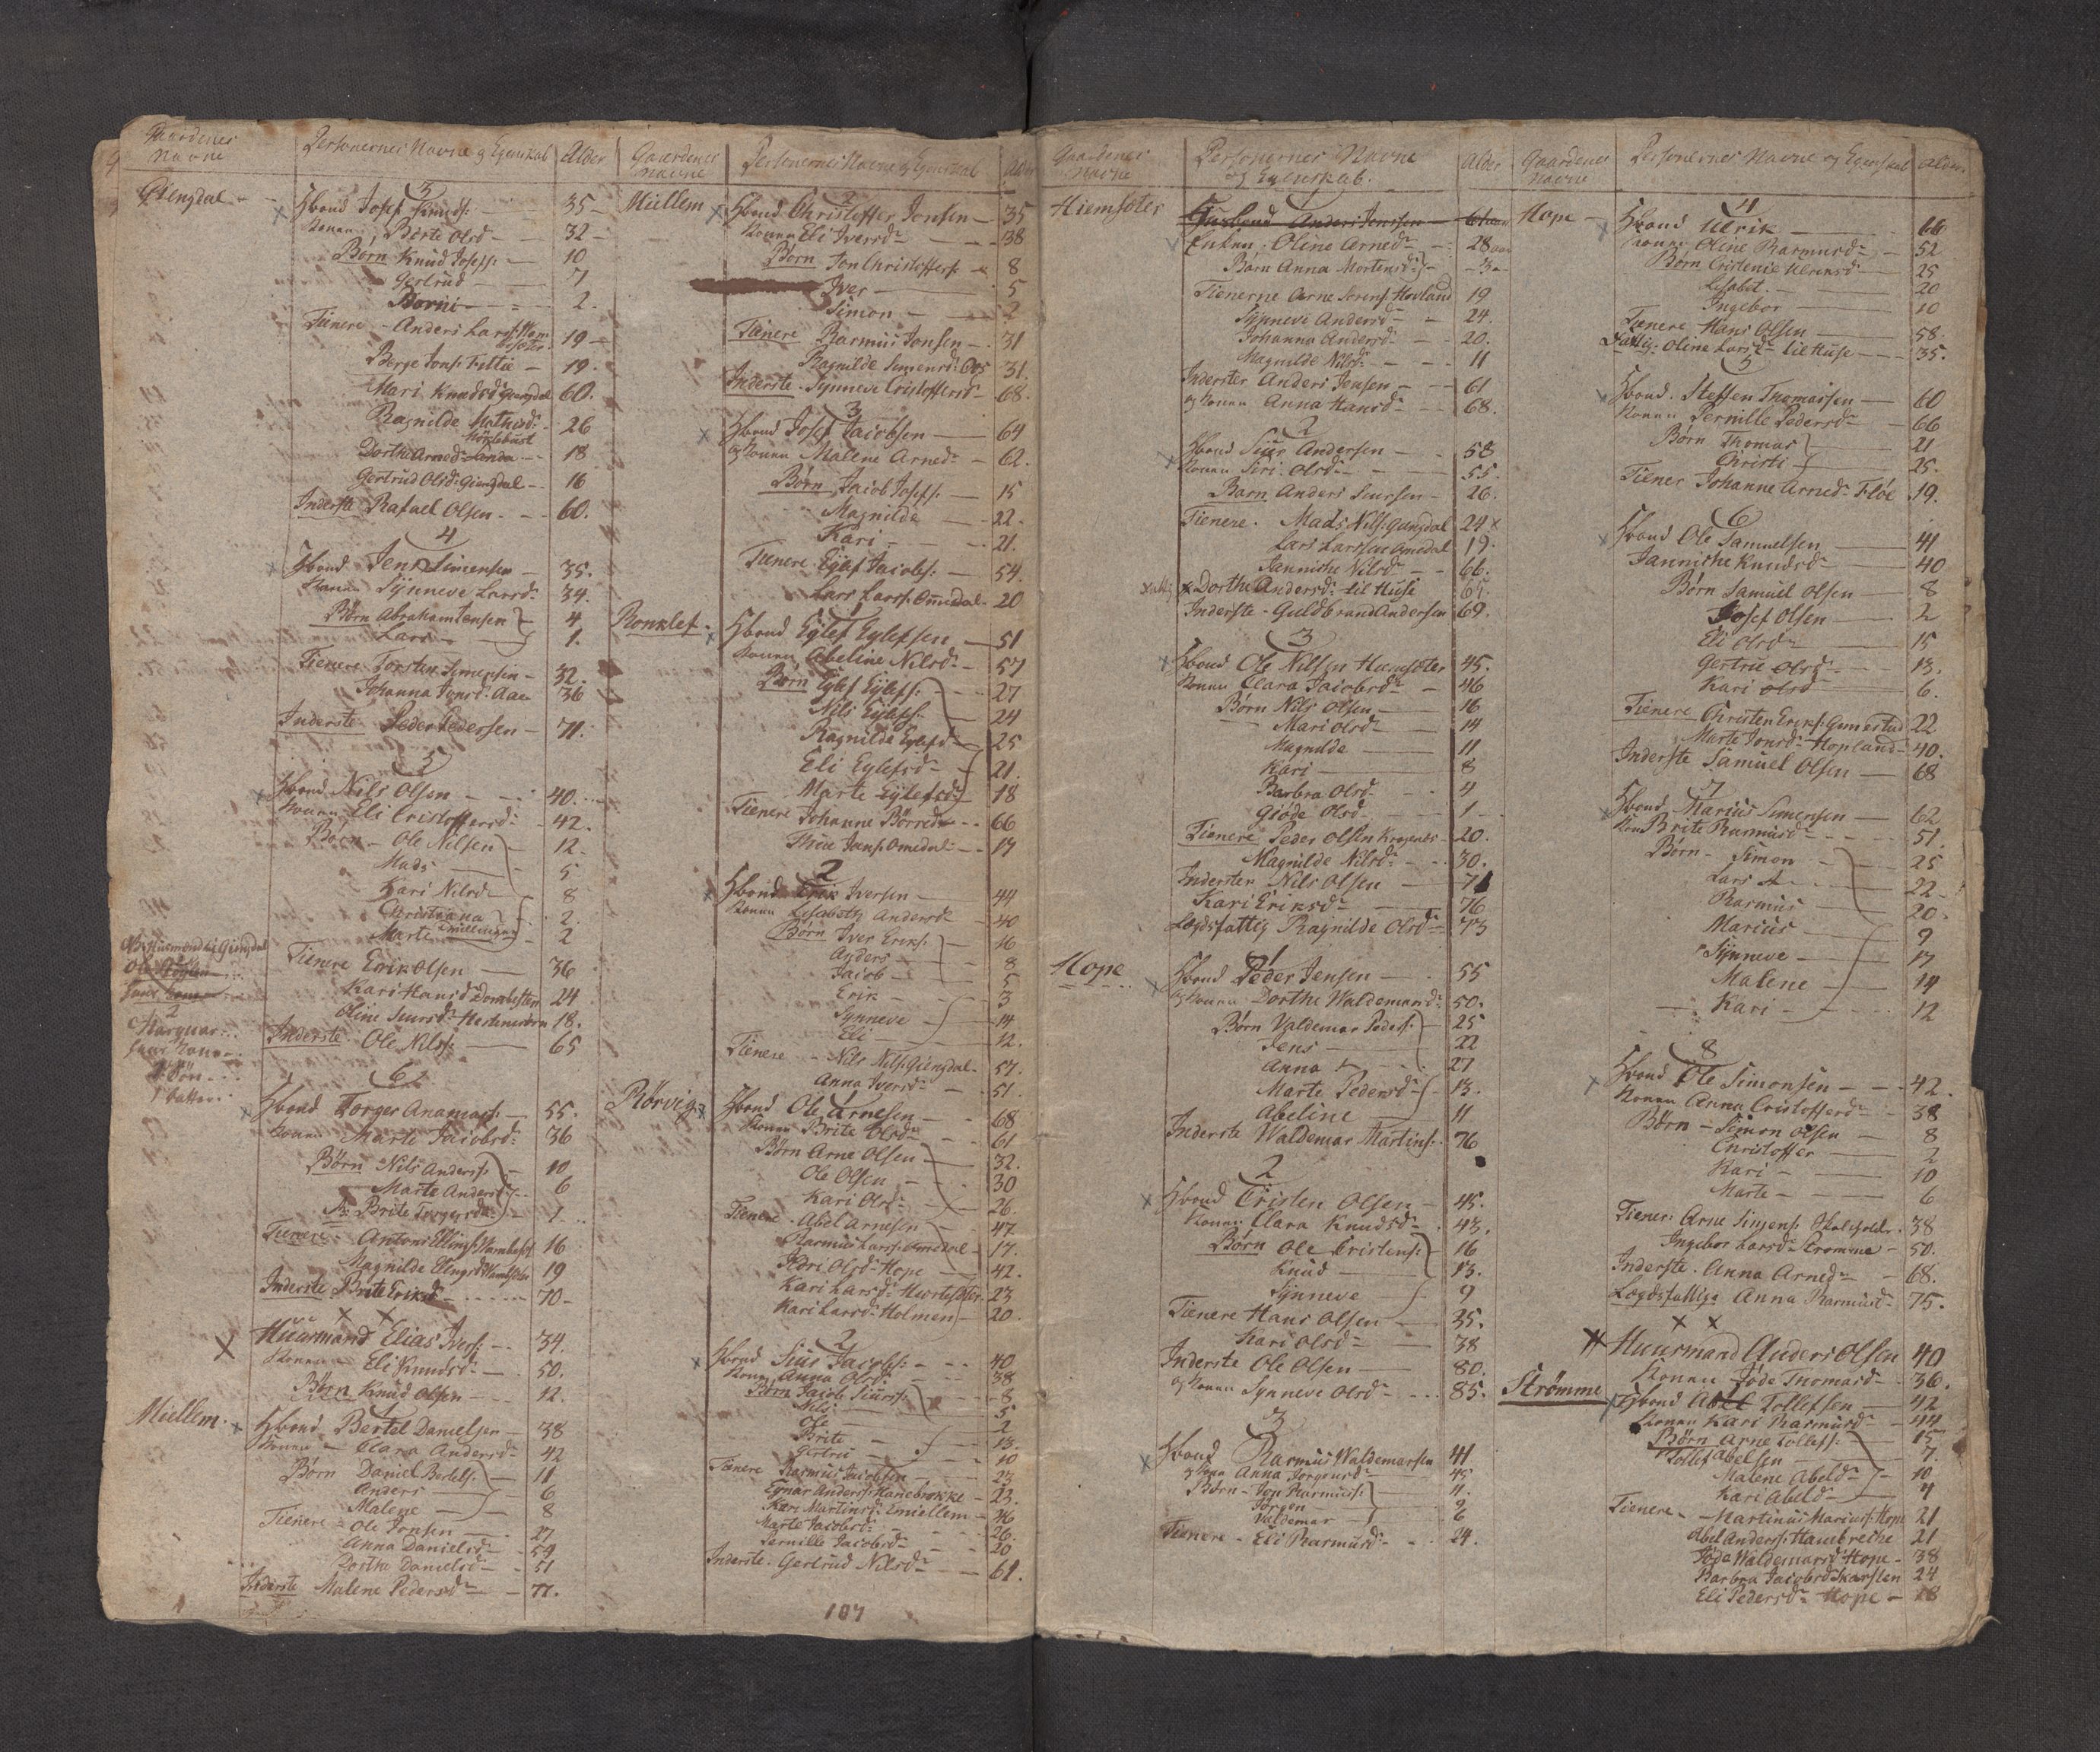 Gaardenes Navne
Personernes Navne og Egenskab
Alder
Giengdal
3
Hbond Josef Knuds: 35
Konen Birte Olsd 32
Børn Knud Josefs: 10
Gertrud 7
2.
Tienere Anders Larss: 19
Børge Jons: Fittie 19.
Mari Knudsd Giengdal 60.
Ragnilde Mathisd: 26
Dorthe Arned 18
Gertrud Olsd: Giengdal 16
Inderste Rafael Olsen 60.
4
Hbond Jens Simensen 35.
Konen Synneve Larsd: 34.
Børn Abraham Jensen 4
Lars 1.
Tienere Torsten Simensen 32.
Johanna Jensd: Aae 36
Inderste Peder Pedersen 71.
5
Hbond Nils Olsen 40.
Konen Eli Cristoffersd: 42.
Børn Ole Nilsen 12.
Mads 5
Kari Nilsd 8
Christiana 2.
Marte 2
Tienere Erik Olsen 36
Kari Hansd: 24
Oline Siursd: 18.
Inderste Ole Nils: 65
2
Hans Kone
1 Søn
1 Datter
6
Hbond Torger Ananias: 55.
Konen Marte Jacobsd: 36
Børn Nils Anderss: 10
Marte Andersd: 6
Brite Torgersd: 1
Tienere Antoni Ellings: 16
Magnilde Elingsd 19
Inderste Brite Eriksd 70
Huusmand Elias Ivers: 34.
Konen Eli Knudsd: 50.
Børn Knud Olsen 12.
Miellem
1
Hbond Bertel Danielsen 38
Konen Clara Andersd: 42
Børn Daniel Bertels: 11
Anders 6
Malene 8
Tienere Ole Jonsen 27
Anna Danielsd: 59
Dorthe Danielsd 51
Inderste Malene Pedersd: 77.
Gaardenes Navne
Personernes Navne og Egenskab
Miellem
2
Hbond Christoffer Jonsen 35
Konen Eli Iversd: 38
Børn Jon Christoffers: 8
Iver 5
Simon 2
Tienere Rasmus Jonsen 31
Ragnilde Simensd: 31.
Inderste Synneve Cristoffersd 68.
3
Hbond Josef Jacobsen 64
og Konen Malene Arned: 62.
Børn Jacob Josefs: 15
Magnilde 22.
Kari 21.
Tienere Eylef Jacobs: 54.
Lars Larss: Omedal 20
Ronklef
1
Hbond Eylef Eylefsen 51
Konen Abeline Nilsd: 57
Børn Eylef Eylefs: 27
Nils Eylefs: 24
Ragnilde Eylefsd 25
Eli Eylefsd 21.
Marte Eylefsd: 18
Tienere Johanne Børresd 66
Thue Jans: Omedal 17
2
Hbond Erik Iversen 44
Konen Lisabeth Andersd 40
Børn Iver Eriks: 16
Anders 8
Jacob 5
Erik 3
Synneve 14
Eli 12.
Tienere Nils Nils: Giengdal 57.
Anna Iversd 51.
Rørvig
1
Hbond Ole Arnesen 68
Konen Brite Olsd: 61
Børn Arne Olsen 32.
Ole Olsen 30
Kari Olsd: 26.
Tienere Abel Arnesen 47
Rasmus Larss: Omedal 17.
Kari Olsd: Hope 42.
Kari Larsd: 23
Kari Larsd: Holmen 20.
2
Hbond Siur Jacobs: 40
Konen Anna Olsd: 38
Børn Jacob Siurss: 8
Nils 5
Ole 2
Brite 13.
Gertrud 10
Tienere Rasmus Jacobsen 23
Eynar Anderss: Hanebrokke 23.
Kari Martinsd: Emiellem 46
Marte Jacobsd: 26
Pernille Jacobsd 20
Inderste Gertrud Nilsd: 61.
107
Gaardenes Navne
Personernes Navne og Egenskab.
Alder
Hiemsæter
Husbond Anders Jonssen
Enken Oline Arned: 28
Børn Anna Mortensd: 3
Tienerne Arne Sørens: Hovland 19
Synneve Andersd: 24.
Johanna Andersd: 20.
Magnilde Nilsd: 11
Inderster Anders Jensen 61
og Konen Anna Hansd: 68.
2
Hbond Siur Andersen 58
Konen Siri Olsd: 55.
Børn Anders Siursen 26.
Tienere Mads Nils: Giengdal 24
Lars Larssen Omedal 19.
Jannicke Nilsd 66.
Dorthe Andersd: til Huse
Inderste Guldbrand Andersen 69.
3
Hbond Ole Nilsen Hiemsæter 45.
Konen Clara Jacobsd: 46
Børn Nils Olsen 16
Mari Olsd 14
Magnilde 11
Kari 8
Barbra Olsd 4
Giøde Olsd 1
Tienere Peder Olsen 20.
Magnilde Nilsd: 30.
Inderster Nils Olsen
Kari Eriksd: 76
Lægdsfattig Ragnilde Olsd: 73
Hope
1
Hbond Peder Jensen 55
og Konen Dorthe Waldemarsd: 50.
Børn Valdemar Peders: 25
Jens 22
Anna 27
Marte Pedersd 13.
Abeline 11
Inderste Waldemar Martins: 76
2
Hbond Cristen Olsen 45.
Konen Clara Knudsd: 43.
Børn Ole Cristens: 16
Knud 13.
Synneve 9
Tienere Hans Olsen 35.
Kari Olsd: 38
Inderste Ole Olsen 80.
og Konen Synneve Olsd: 85.
3
Hbond Rasmus Waldemarsen 41
og Kone Anna Jørgensd: 45
Børn Jon Rasmuss: 11.
Jørgen 9
Valdemar 6
Tienere Eli Rasmusd: 24.
Gaardenes Navne
Personernes Navne og Egenskab
Alder
Hope
4
Hbond Ulrik 66
Konen Oline Rasmusd: 52
Børn Cristense Ulriksd: 25
Lisabet 20
Ingebor 10
Tienere Hans Olsen 58.
Fattig: Oline Larsd: til Huse 35.
5
Hbond Steffen Thomassen 60
Konen Pernille Pedersd: 66
Børn Thomas 21
Christi 25.
Tiener Johanne Arned: Fløe 19.
6
Hbond Ole Samuelsen 41
Jannicke Knudsd 40
Børn Samuel Olsen 8
Josef Olsen 2
Eli Olsd 15
Gertrue Olsd 13.
Kari Olsd 6.
Tienere Christen Eriks: 22
Marte Jonsd: Hopland 40.
Inderste Samuel Olsen 68
7
Hbond Marius Simensen 62
Kone Brite Rasmusd: 51.
Børn Simon 25
Lars 22
Rasmus 20.
Marius 9
Synneve 17
Malene 14
Kari 12
8
Hbond Ole Simonsen 42.
Konen Anna Cristoffersd: 38
Børn Simon Olsen 8
Christoffer 2
Kari 10
Marte 6
Tiener: Arne Simens: 38
Ingebor Larsd: Strømme 50.
Inderste Anna Arned: 68.
Lægdsfattige Anna Rasmusd: 75.
Huusmand Anders Olsen 40
Konen Jøde Thomasd: 36.
Strømme
Hbond Abel Tollefsen 42
Konen Kari Rasmusd: 44
Børn Arne Tollefs: 15
Tollef Abelsen 7.
Malene Abelsd: 10
Kari Abelsd 4
Tienere Martinus Mariuss: Hope 21
Abel Anderss: 21
Jøde Waldemarsd: Hope 38
Barbra Jacobsd: Skarsten 24
Eli Pedersd: Hope 18